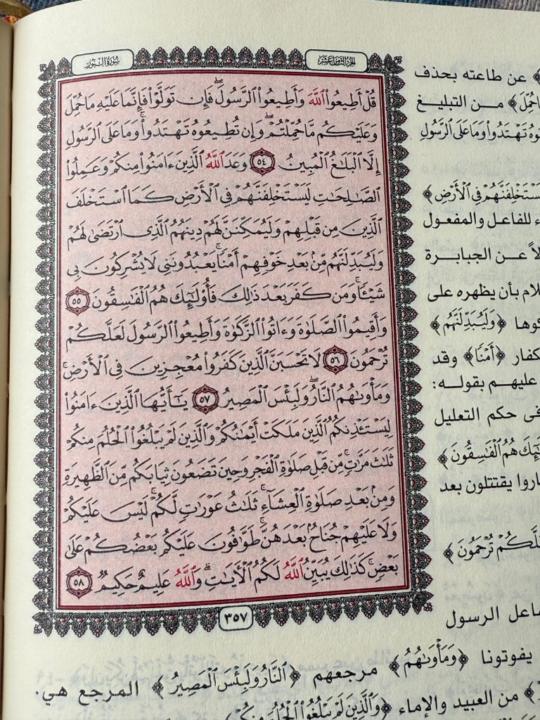 سورة النور
الجزء الثامن عشر
قُلْ أَطِيعُوا۟ ٱللَّهَ وَأَطِيعُوا۟ ٱلرَّسُولَ ۖ فَإِن تَوَلَّوْا۟ فَإِنَّمَا عَلَيْهِ مَا حُمِّلَ
وَعَلَيْكُم مَّا حُمِّلْتُمْ ۖ وَإِن تُطِيعُوهُ تَهْتَدُوا۟ ۚ وَمَا عَلَى ٱلرَّسُولِ
إِلَّا ٱلْبَلَـٰغُ ٱلْمُبِينُ ٥٤ وَعَدَ ٱللَّهُ ٱلَّذِينَ ءَامَنُوا۟ مِنكُمْ وَعَمِلُوا۟
ٱلصَّـٰلِحَـٰتِ لَيَسْتَخْلِفَنَّهُمْ فِى ٱلْأَرْضِ كَمَا ٱسْتَخْلَفَ
ٱلَّذِينَ مِن قَبْلِهِمْ وَلَيُمَكِّنَنَّ لَهُمْ دِينَهُمُ ٱلَّذِى ٱرْتَضَىٰ لَهُمْ
وَلَيُبَدِّلَنَّهُم مِّنۢ بَعْدِ خَوْفِهِمْ أَمْنًا ۚ يَعْبُدُونَنِى لَا يُشْرِكُونَ بِى
شَيْـًٔا ۚ وَمَن كَفَرَ بَعْدَ ذَٰلِكَ فَأُو۟لَـٰٓئِكَ هُمُ ٱلْفَـٰسِقُونَ ٥٥
وَأَقِيمُوا۟ ٱلصَّلَوٰةَ وَءَاتُوا۟ ٱلزَّكَوٰةَ وَأَطِيعُوا۟ ٱلرَّسُولَ لَعَلَّكُمْ
تُرْحَمُونَ ٥٦ لَا تَحْسَبَنَّ ٱلَّذِينَ كَفَرُوا۟ مُعْجِزِينَ فِى ٱلْأَرْضِ ۚ
وَمَأْوَىٰهُمُ ٱلنَّارُ ۖ وَلَبِئْسَ ٱلْمَصِيرُ ٥٧ يَـٰٓأَيُّهَا ٱلَّذِينَ ءَامَنُوا۟
لِيَسْتَـْٔذِنكُمُ ٱلَّذِينَ مَلَكَتْ أَيْمَـٰنُكُمْ وَٱلَّذِينَ لَمْ يَبْلُغُوا۟ ٱلْحُلُمَ مِنكُمْ
ثَلَـٰثَ مَرَّٰتٍ ۚ مِّن قَبْلِ صَلَوٰةِ ٱلْفَجْرِ وَحِينَ تَضَعُونَ ثِيَابَكُم مِّنَ ٱلظَّهِيرَةِ
وَمِنۢ بَعْدِ صَلَوٰةِ ٱلْعِشَآءِ ۚ ثَلَـٰثُ عَوْرَٰتٍ لَّكُمْ ۚ لَيْسَ عَلَيْكُمْ
وَلَا عَلَيْهِمْ جُنَاحٌۢ بَعْدَهُنَّ ۚ طَوَّٰفُونَ عَلَيْكُم بَعْضُكُمْ عَلَىٰ
بَعْضٍ ۚ كَذَٰلِكَ يُبَيِّنُ ٱللَّهُ لَكُمُ ٱلْـَٔايَـٰتِ ۗ وَٱللَّهُ عَلِيمٌ حَكِيمٌ ٥٨
٣٥٧
﴾ عن طاعته بحذف
حُمِّلَ﴾ من التبليغ
تَهْتَدُوا۟ وَمَا عَلَى ٱلرَّسُولِ
فِى ٱلْأَرْضِ﴾
ء للفاعل والمفعول
لاً عن الجبابرة
لام بأن يظهره على
كوها ﴿وَلَيُبَدِّلَنَّهُم﴾
كفار ﴿أَمْنًا﴾ وقد
عليهم بقوله:
فى حكم التعليل
هُمُ ٱلْفَـٰسِقُونَ﴾
اروا يقتتلون بعد
لَعَلَّكُمْ تُرْحَمُونَ﴾
اعل الرسول
يفوتونا ﴿وَمَأْوَىٰهُمُ﴾ مرجعهم ﴿ٱلنَّارُ وَلَبِئْسَ ٱلْمَصِيرُ﴾ المرجع هي.
﴾ من العبيد والإماء ﴿وَٱلَّذِينَ لَمْ يَبْلُغُوا۟ ٱلْحُلُمَ مِنكُمْ﴾